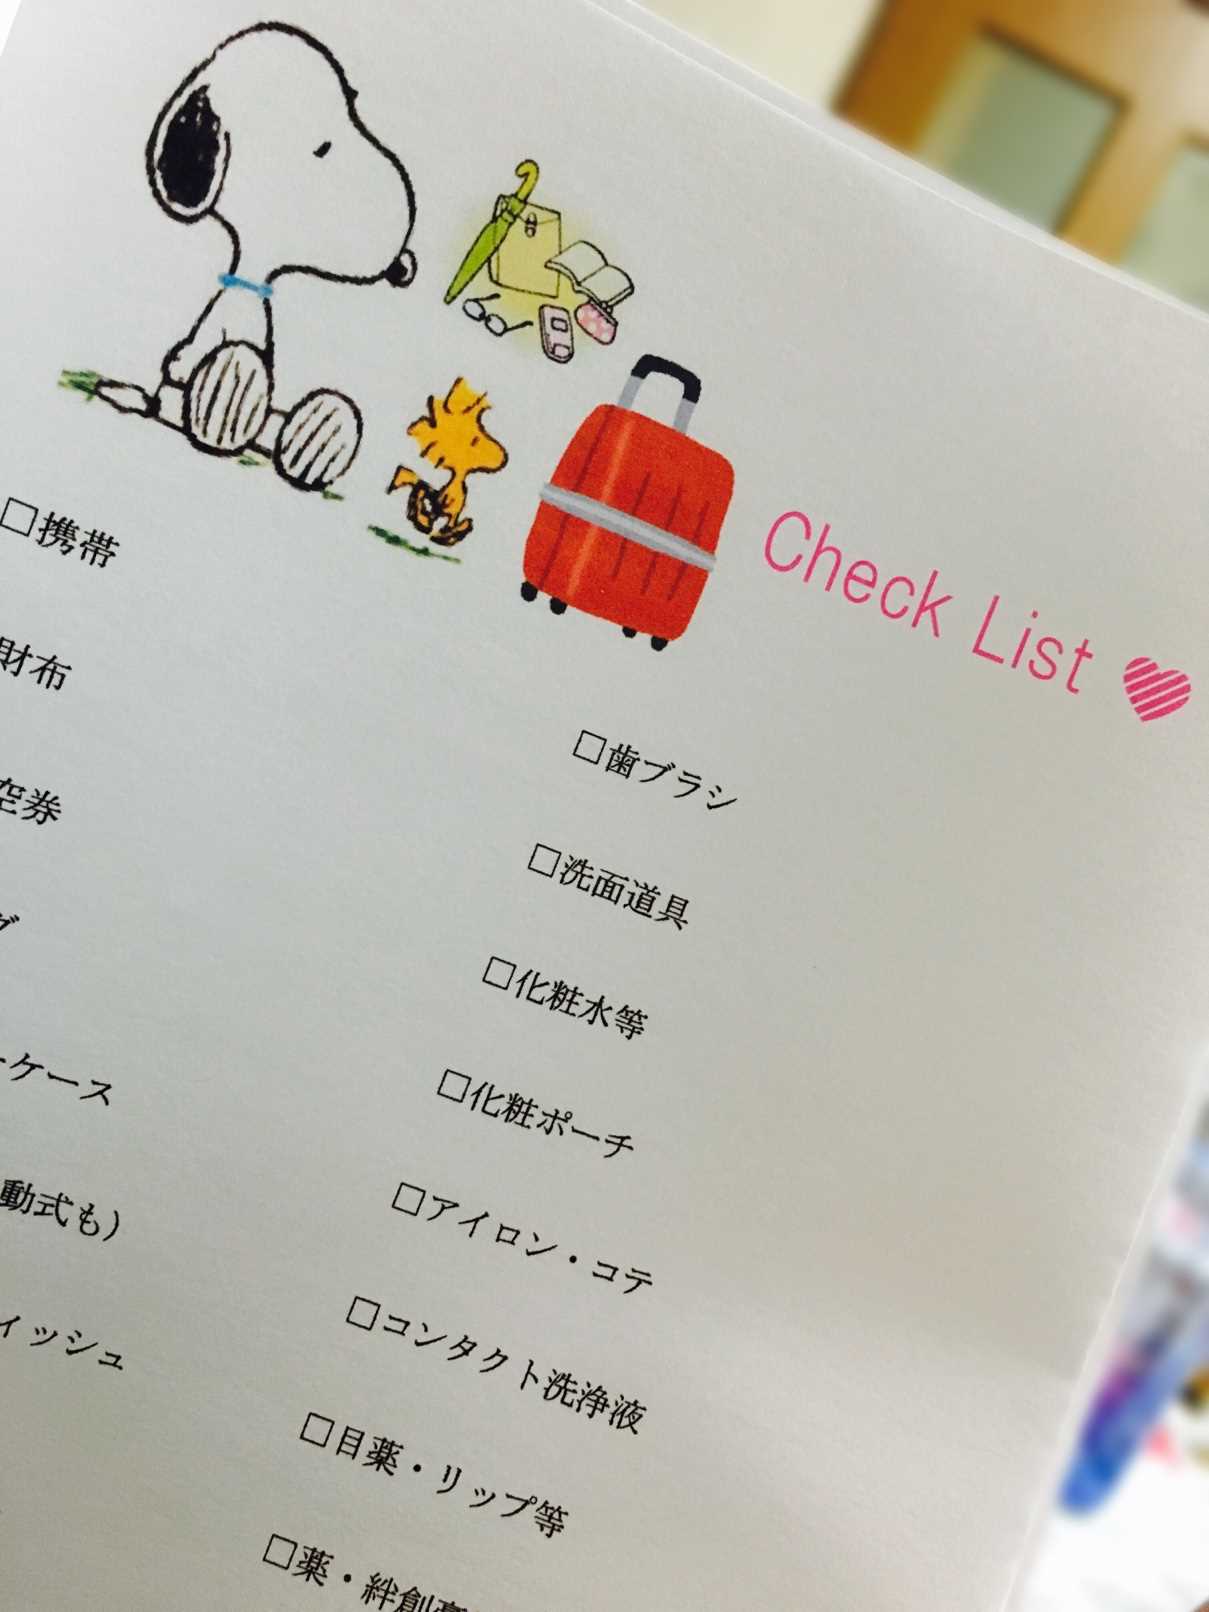 Check List
□携帯
財布
空券
グ
ーケース
動式も）
ィッシュ
□歯ブラシ
□洗面道具
□化粧水等
□化粧ポーチ
□アイロン・コテ
□コンタクト洗浄液
□目薬・リップ等
□薬・絆創膏